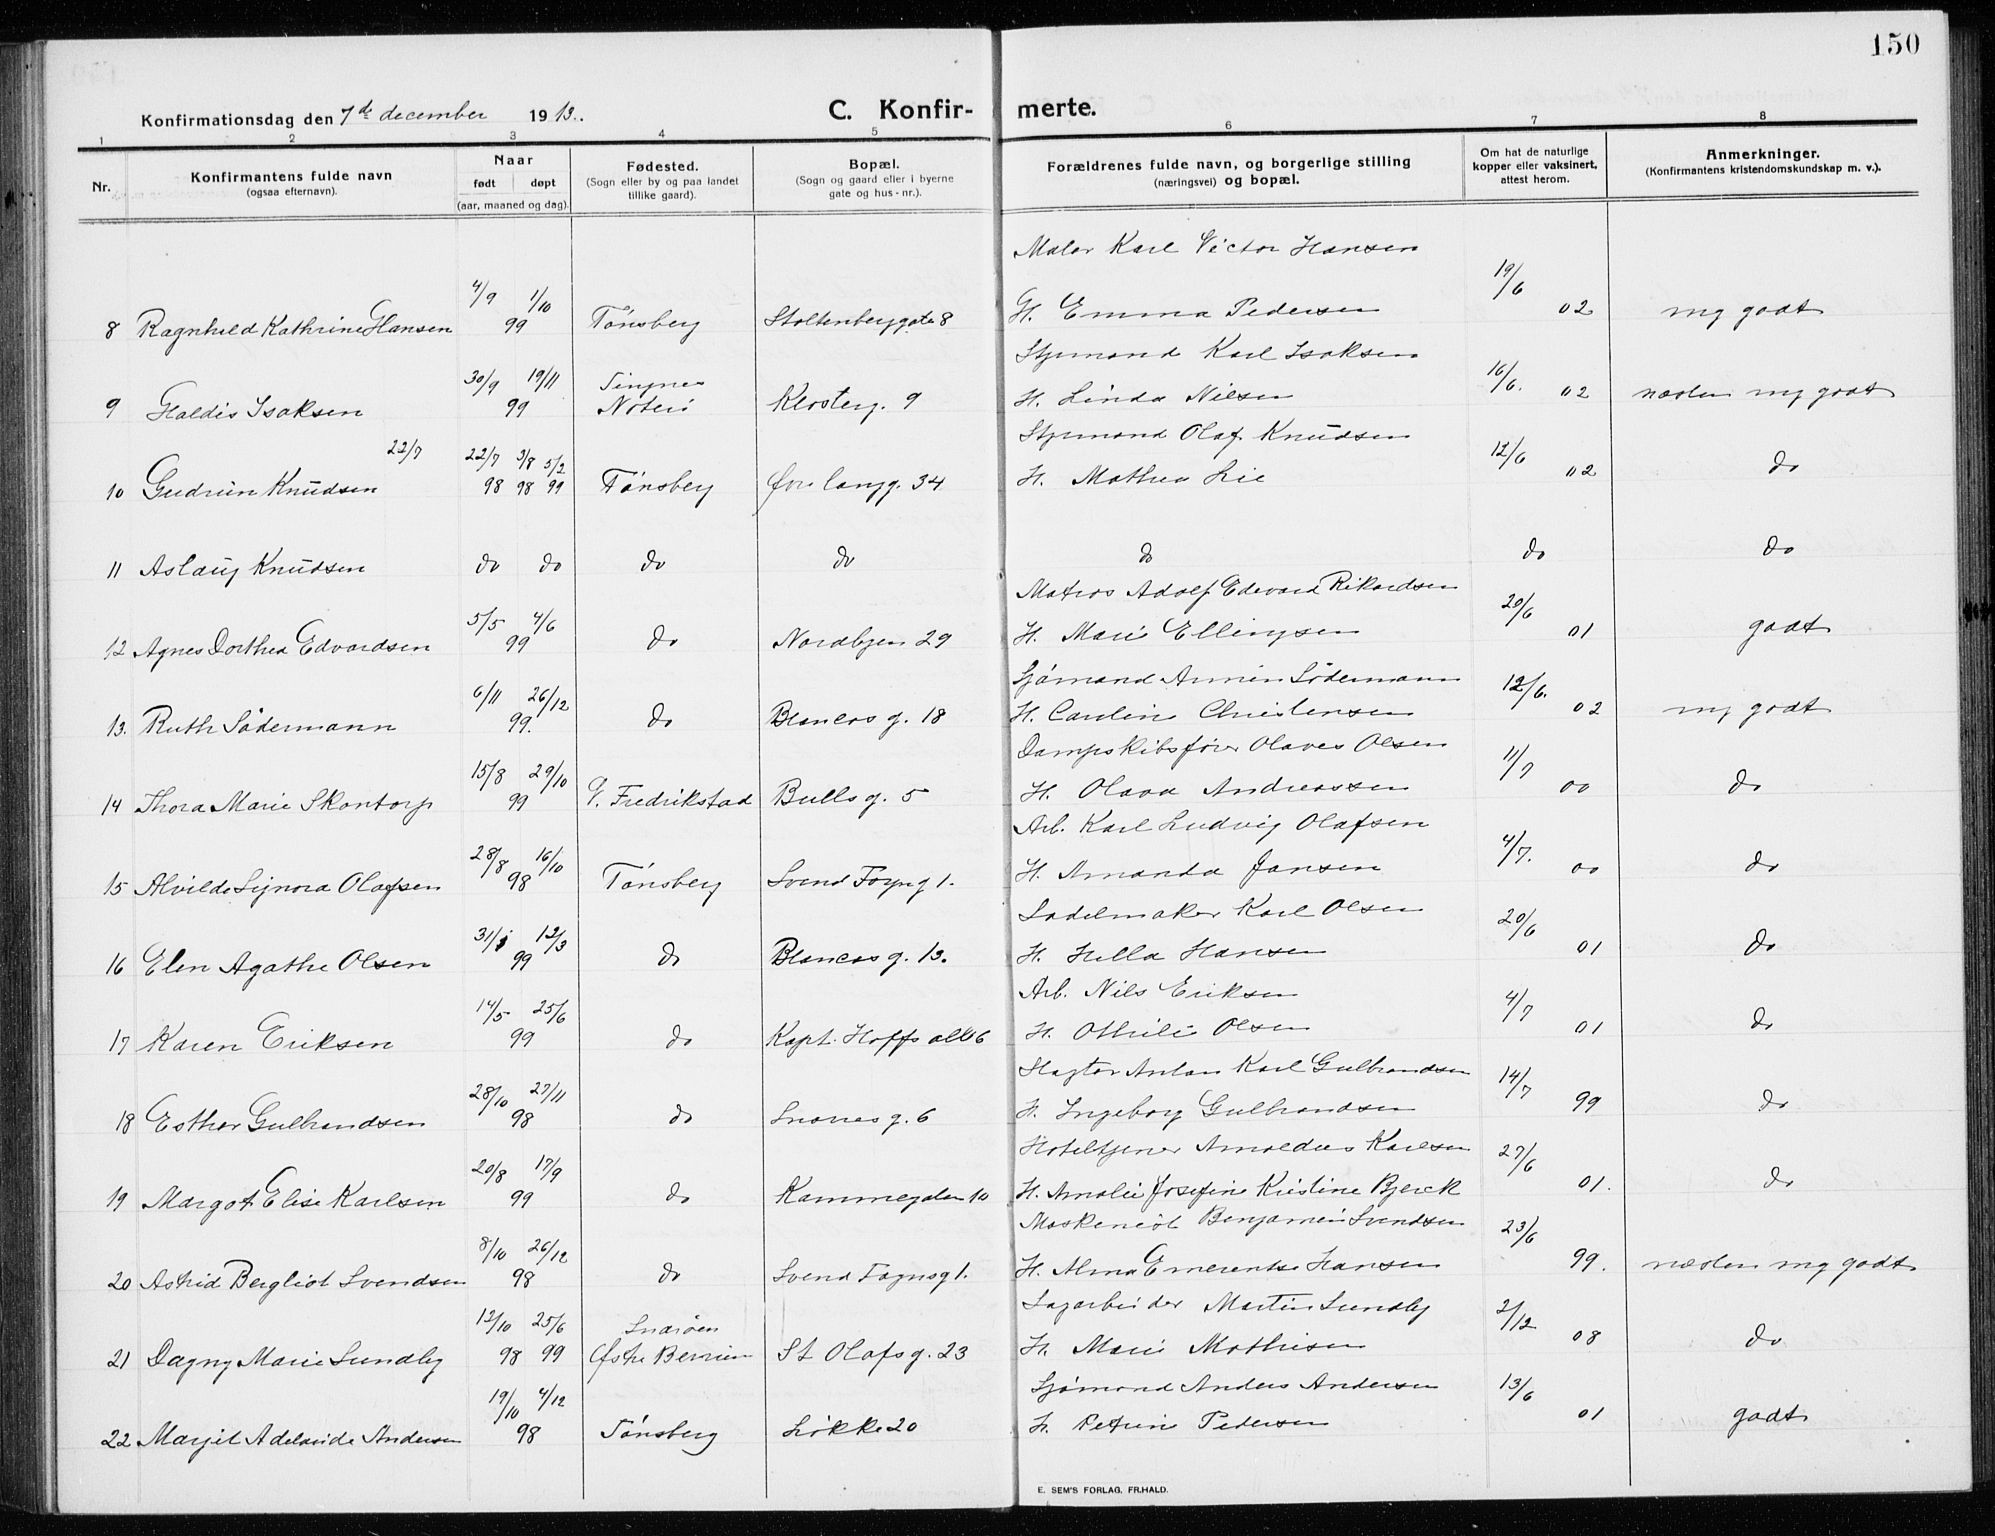 150
Konfirmationsdag den 7de december 1913.
C. Konfirmerte.
1 2 3 4 5 6 7 8
Nr.
Konfirmantens fulde navn
(ogsaa efternavn).
Naar
født døpt
(aar, maaned og dag).
Fødested.
(Sogn eller by og paa landet
tillike gaard).
Bopæl.
(Sogn og gaard eller i byerne
gate og hus-nr.).
Forældrenes fulde navn, og borgerlige stilling
(næringsvei) og bopæl.
Om hat de naturlige
kopper eller vaksinert,
attest herom.
Anmerkninger.
(Konfirmantens kristendomskundskap m. v.).
Maler Karl Victor Hansen
4/9 1/10 19/6
8 Ragnhild Kathrine Hansen 99 Tønsberg Stoltenberggate 8 H. Emma Pedersen 02 mg godt
Styrmand Karl Isaksen
30/9 19/11 16/6.
9 Haldis Isaksen 99 Nøterø Klosterg. 9 H. Linda Nilsen 02 næsten mg godt
Styrmand Olaf Knudsen
22/7 22/7 3/8 5/2 12/6
10 Gudrun Knudsen 98 98 99 Tønsberg Øvre langg. 34 H. Mathea Lie 02 do
11 Aslaug Knudsen do do do do do do do
Matros Adolf Edvard Rikardsen
5/5 4/6 20/6
12 Agnes Dorthea Edvardsen 99 do Nordbyen 29 H. Marie Ellingsen 01 godt
Sjømand Armin Södermann
6/11 26/12 12/6.
13. Ruth Södermann 99. do Blancas g. 18 H. Caroline Christensen 02 mg godt
Dampskibsfører Olaves Olsen
15/8 29/10 11/7
14 Thora Marie Skontorp 99 G. Fredrikstad Bulls g. 5 H. Olava Andreassen 00 do
Arb. Karl Ludvig Olafsen
28/8 16/10 4/7.
15 Alvilde Signora Olafsen 98 Tønsberg Svend Foyn g 1. H. Amanda Jansen 00 do
Sadelmaker Karl Olsen
31/1 12/3 20/6
16 Elen Agathe Olsen 99 do Blancas g. 13. H. Hella Hansen 01 do
Arb. Nils Eriksen
14/5 25/6 4/7
17 Karen Eriksen 99 do Kapt. Hoffs alle 6 H. Othilie Olsen 01 do
Slagter Anton Karl Gulbrandsen
28/10 27/11 14/7
18 Esther Gulbrandsen 98 do Snares g. 6 H. Ingeborg Gulbrandsen 99 do
Hoteltjener Arnoldus Karlsen
20/8 17/9 27/6
19 Margot Elise Karlsen 99 do Kammegaten 10 H. Amalie Josefine Kristine Bjerck 01. do
Maskinist Benjamin Svendsen
8/10 26/12 23/6
20 Astrid Bergliot Svendsen 98 do Svend Foyns g 1. H. Alma Emerentse Hansen 99. næsten mg godt
Sagarbeider Martin Sundby
12/10 25/6 Snarøen 2/12
21 Dagny Marie Sundby 98 99 Østre Bærum St Olafs g. 23 H. Marie Mathisen 08 do
Sjømand Anders Andersen
19/10 4/12 13/6
22 Margit Adelaide Andersen 98 Tønsberg Løkke 20 H. Petrine Pedersen 01 godt
E. SEM'S FORLAG, FR.HALD.